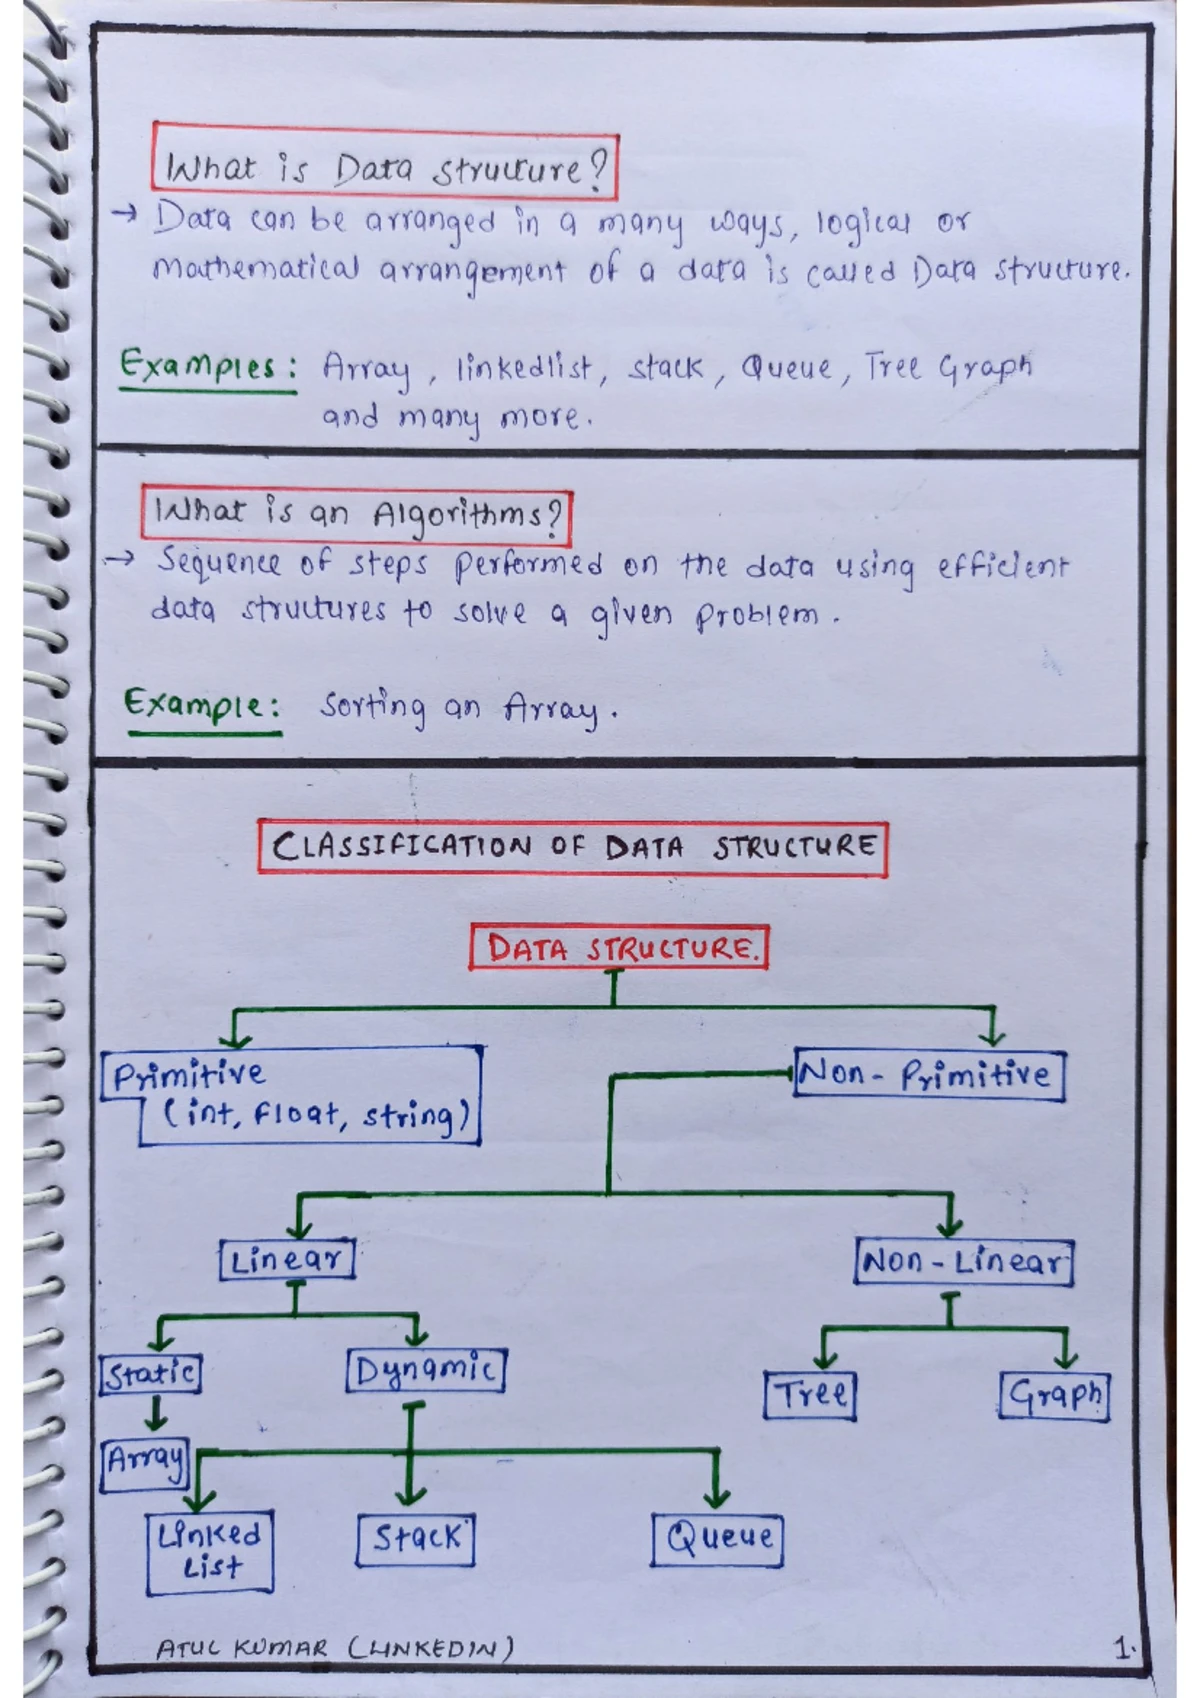 What is Data structure?
→ Data can be arranged in a many ways, logical or
mathematical arrangement of a data is called Data structure.
Examples: Array, linkedlist, stack, Queue, Tree Graph
and many more.
What is an Algorithms?
→ Sequence of steps performed on the data using efficient
data structures to solve a given problem.
Example: Sorting an Array.
CLASSIFICATION OF DATA STRUCTURE
DATA STRUCTURE.
Primitive
(int, float, string)
Non-Primitive
Linear
Non-Linear
Static
Dynamic
Tree
Graph
Array
Linked
List
Stack
Queue
ATUL KUMAR (LINKEDIN)
1.